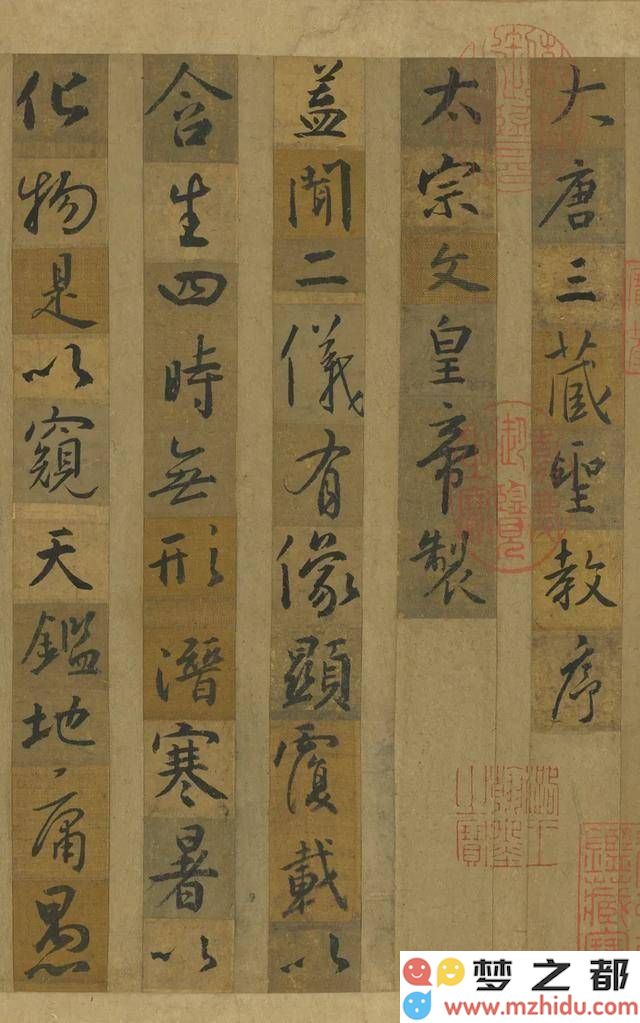 大唐三藏聖教序
太宗文皇帝製
蓋聞二儀有像顯覆載以
含生四時無形潛寒暑以
化物是以窺天鑑地庸愚
梦之都
www.mzhidu.com